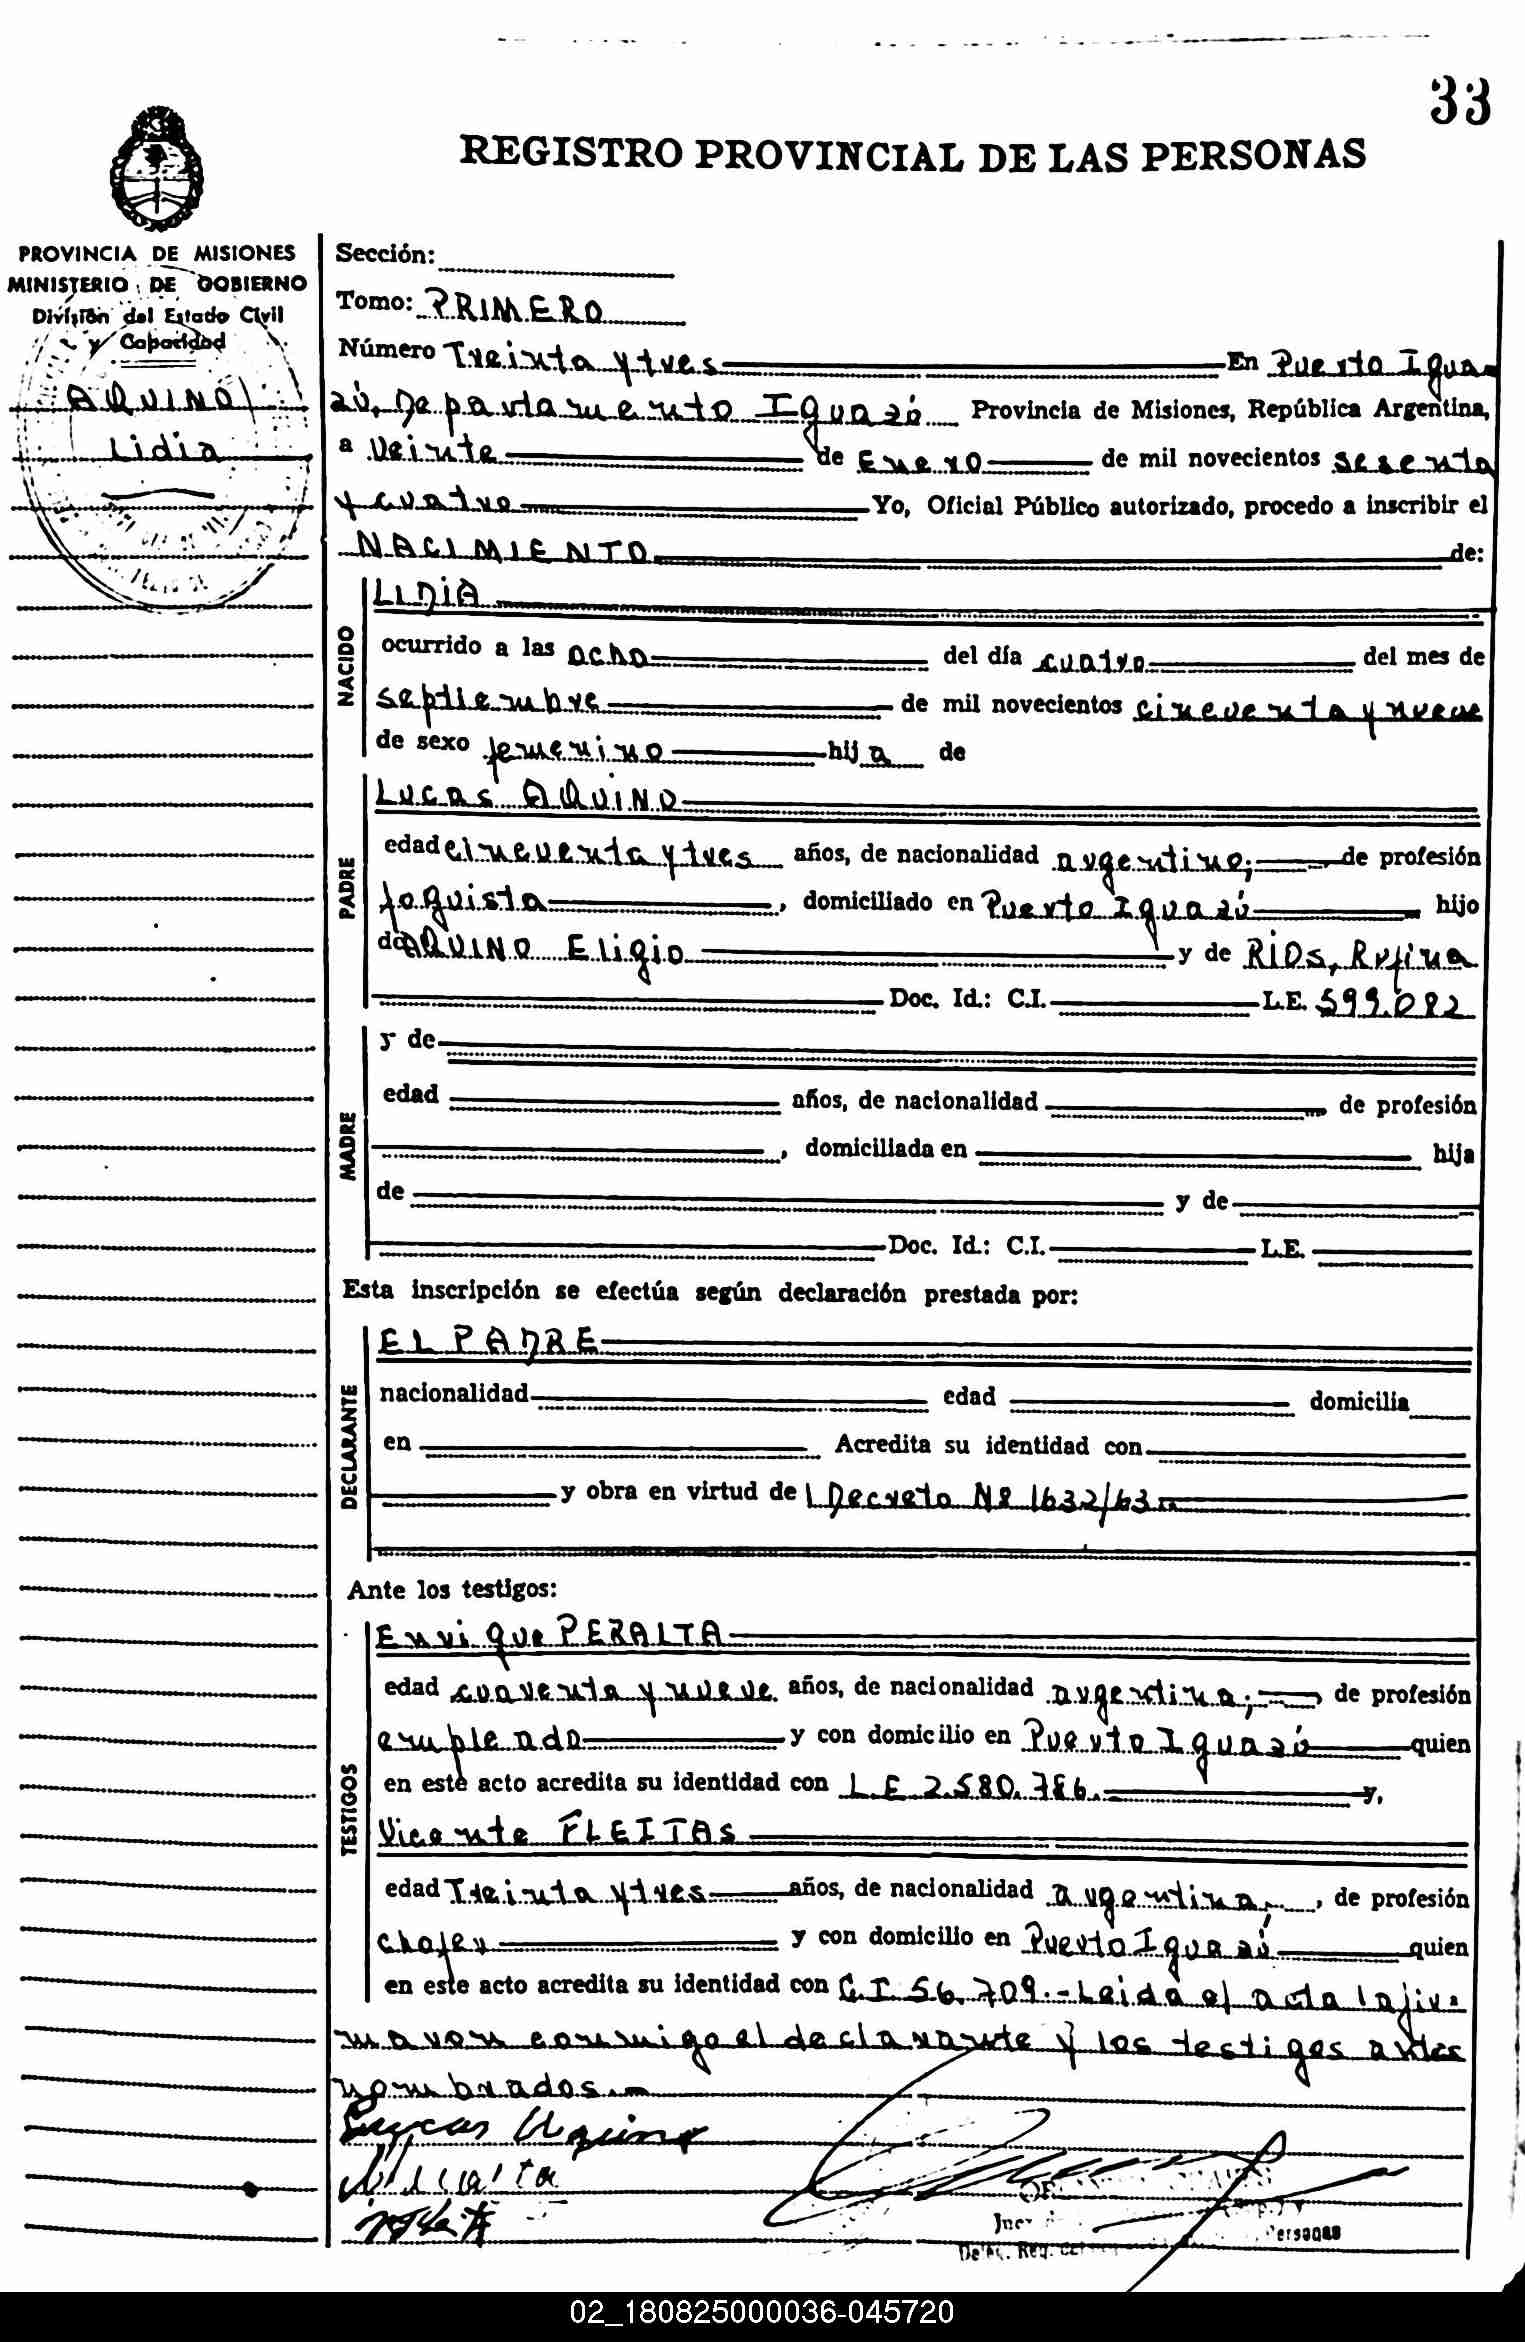 33
REGISTRO PROVINCIAL DE LAS PERSONAS
PROVINCIA DE MISIONES
MINISTERIO DE GOBIERNO
División del Estado Civil
y Capacidad
AQUINO
Lidia
Sección:
Tomo: PRIMERO
Número Treinta y tres En Puerto Igua-
zú, Departamento Iguazú Provincia de Misiones, República Argentina,
a Veinte de Enero de mil novecientos sesenta
y cuatro Yo, Oficial Público autorizado, procedo a inscribir el
NACIMIENTO de:
NACIDO
LIDIA
ocurrido a las ocho del día cuatro del mes de
septiembre de mil novecientos cincuenta y nueve
de sexo femenino hija de
PADRE
Lucas AQUINO
edad cincuenta y tres años, de nacionalidad argentino; de profesión
foguista, domiciliado en Puerto Iguazú hijo
de AQUINO Eligio y de RÍOS, Rufina
Doc. Id.: C.I. L.E. 599.082
MADRE
y de
edad años, de nacionalidad de profesión
, domiciliada en hija
de y de
Doc. Id.: C.I. L.E.
Esta inscripción se efectúa según declaración prestada por:
DECLARANTE
EL PADRE
nacionalidad edad domicilia
en Acredita su identidad con
y obra en virtud de l Decreto Nº 1632/63.-
Ante los testigos:
TESTIGOS
Enrique PERALTA
edad cuarenta y nueve años, de nacionalidad argentina; de profesión
empleado y con domicilio en Puerto Iguazú quien
en este acto acredita su identidad con L.E 2.580.786.- y,
Vicente FLEITAS
edad Treinta y tres años, de nacionalidad argentina, , de profesión
chofer y con domicilio en Puerto Iguazú quien
en este acto acredita su identidad con C.I 56.709.- Leida el acta la fir-
maron conmigo el declarante y los testigos antes
nombrados.-
Lucas Aquino
Personas
02_180825000036-045720